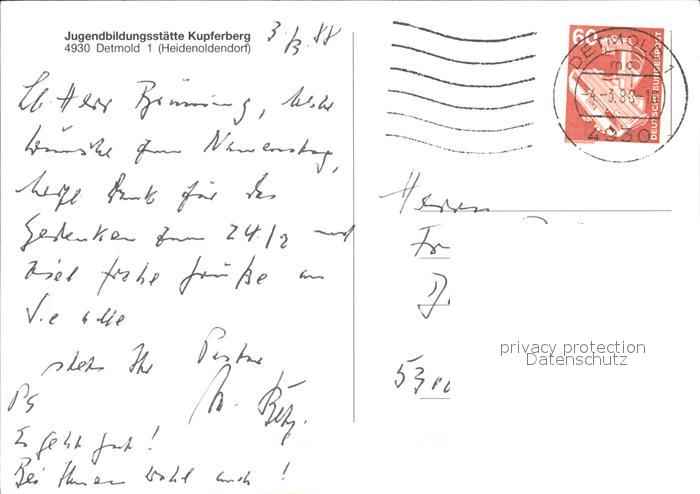 Jugendbildungsstätte Kupferberg
4930 Detmold 1 (Heidenoldendorf)
3./3. 88
Lb Herr Brünning, liebe
Wünsche zum Namenstag,
herzl Dank für das
Gedenken zum 24./2 und
viel frohe Grüße an
Sie alle
stets Ihr Pastor
PS
Es geht gut!
Bei Ihnen wohl auch!
60
DEUTSCHE BUNDESPOST
DETMOLD 1
mc
-3.88-
4930
Herrn
Fr
privacy protection
Datenschutz
53